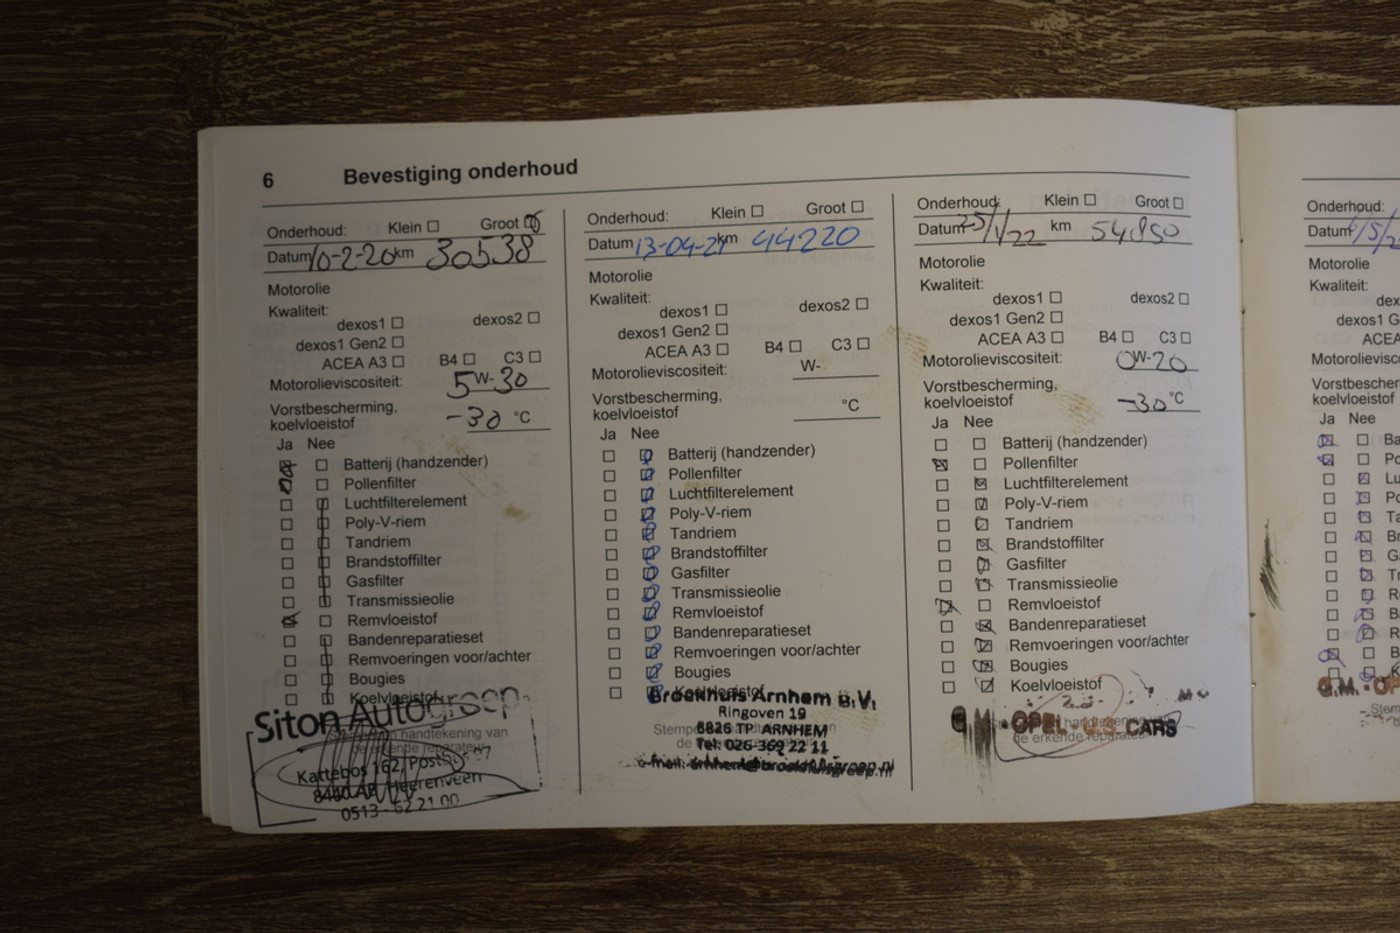 6 Bevestiging onderhoud
Onderhoud: Klein ☐ Groot ☒
Datum 10-2-20 km 30538
Motorolie
Kwaliteit:
dexos1 ☐ dexos2 ☐
dexos1 Gen2 ☐
ACEA A3 ☐ B4 ☐ C3 ☐
Motorolieviscositeit: 5W-30
Vorstbescherming,
koelvloeistof -30 °C
Ja Nee
Batterij (handzender)
Pollenfilter
Luchtfilterelement
Poly-V-riem
Tandriem
Brandstoffilter
Gasfilter
Transmissieolie
Remvloeistof
Bandenreparatieset
Remvoeringen voor/achter
Bougies
Koelvloeistof
Siton Autogroep
handtekening van
de erkende reparateur
Kattebos 162, Postbus
8460 AB Heerenveen
0513 - 62 21 00
Onderhoud: Klein ☐ Groot ☐
Datum 13-04-21 km 44220
Motorolie
Kwaliteit:
dexos1 ☐ dexos2 ☐
dexos1 Gen2 ☐
ACEA A3 ☐ B4 ☐ C3 ☐
Motorolieviscositeit: W-
Vorstbescherming,
koelvloeistof °C
Ja Nee
Batterij (handzender)
Pollenfilter
Luchtfilterelement
Poly-V-riem
Tandriem
Brandstoffilter
Gasfilter
Transmissieolie
Remvloeistof
Bandenreparatieset
Remvoeringen voor/achter
Bougies
Koelvloeistof
Broekhuis Arnhem B.V.
Ringoven 19
6826 TP ARNHEM
Tel: 026-369 22 11
e-mail: arnhem@broekhuisgroep.nl
Onderhoud: Klein ☐ Groot ☐
Datum 25/1/22 km 54850
Motorolie
Kwaliteit:
dexos1 ☐ dexos2 ☐
dexos1 Gen2 ☐
ACEA A3 ☐ B4 ☐ C3 ☐
Motorolieviscositeit: 0W-20
Vorstbescherming,
koelvloeistof -30 °C
Ja Nee
Batterij (handzender)
Pollenfilter
Luchtfilterelement
Poly-V-riem
Tandriem
Brandstoffilter
Gasfilter
Transmissieolie
Remvloeistof
Bandenreparatieset
Remvoeringen voor/achter
Bougies
Koelvloeistof
G.M. - OPEL - U.S. CARS
handtekening van
de erkende reparateur
Onderhoud:
Datum
Motorolie
Kwaliteit:
Ja Nee
G.M. - OP